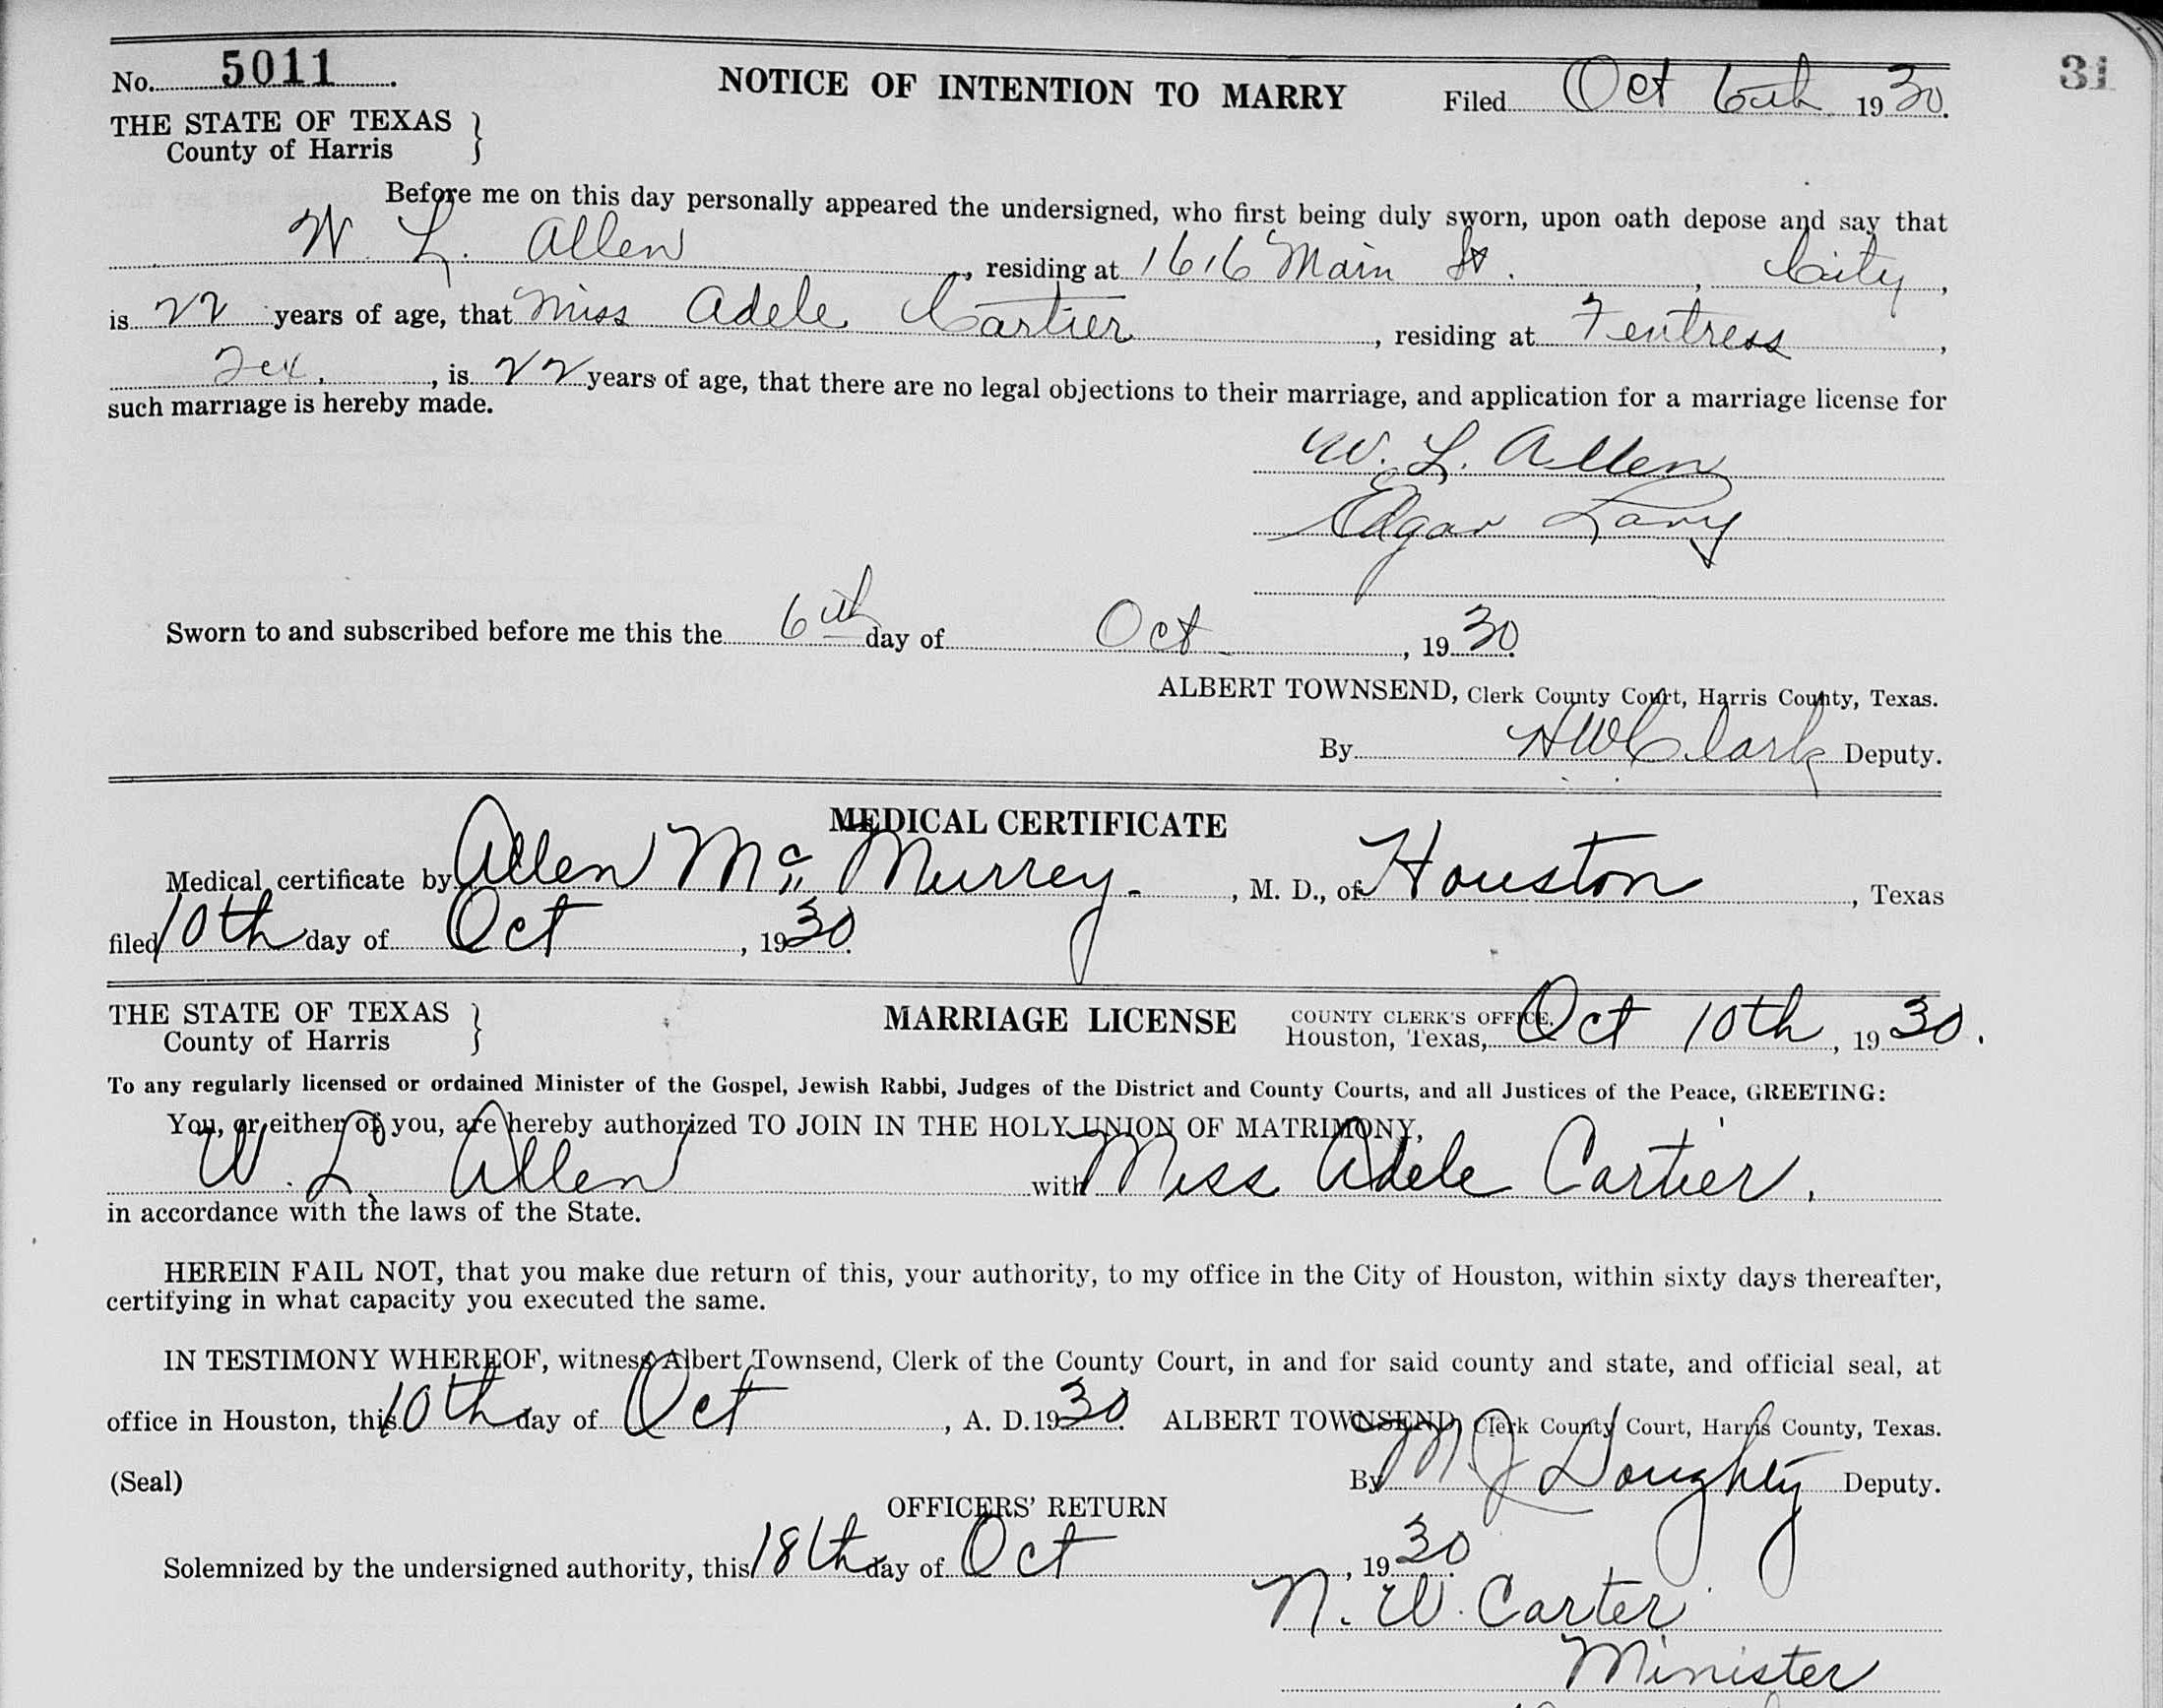 31
No. 5011. NOTICE OF INTENTION TO MARRY Filed Oct 6th 1930.
THE STATE OF TEXAS }
County of Harris
Before me on this day personally appeared the undersigned, who first being duly sworn, upon oath depose and say that
W. L. Allen, residing at 1616 Main St., City,
is 22 years of age, that Miss Adele Cartier, residing at Fentress,
Tex., is 22 years of age, that there are no legal objections to their marriage, and application for a marriage license for
such marriage is hereby made.
W. L. Allen
Edgar
Sworn to and subscribed before me this the 6th day of Oct, 1930.
ALBERT TOWNSEND, Clerk County Court, Harris County, Texas.
By H W Clark Deputy.
MEDICAL CERTIFICATE
Medical certificate by Allen Mc Murrey, M. D., of Houston, Texas
filed 10th day of Oct, 1930.
THE STATE OF TEXAS } MARRIAGE LICENSE COUNTY CLERK'S OFFICE,
County of Harris Houston, Texas, Oct 10th, 1930.
To any regularly licensed or ordained Minister of the Gospel, Jewish Rabbi, Judges of the District and County Courts, and all Justices of the Peace, GREETING:
You, or either of you, are hereby authorized TO JOIN IN THE HOLY UNION OF MATRIMONY,
W. L. Allen with Miss Adele Cartier.
in accordance with the laws of the State.
HEREIN FAIL NOT, that you make due return of this, your authority, to my office in the City of Houston, within sixty days thereafter,
certifying in what capacity you executed the same.
IN TESTIMONY WHEREOF, witness Albert Townsend, Clerk of the County Court, in and for said county and state, and official seal, at
office in Houston, this 10th day of Oct, A. D. 1930. ALBERT TOWNSEND, Clerk County Court, Harris County, Texas.
(Seal) By M J Doughty Deputy.
OFFICERS' RETURN
Solemnized by the undersigned authority, this 18th day of Oct, 1930.
N. W. Carter
Minister